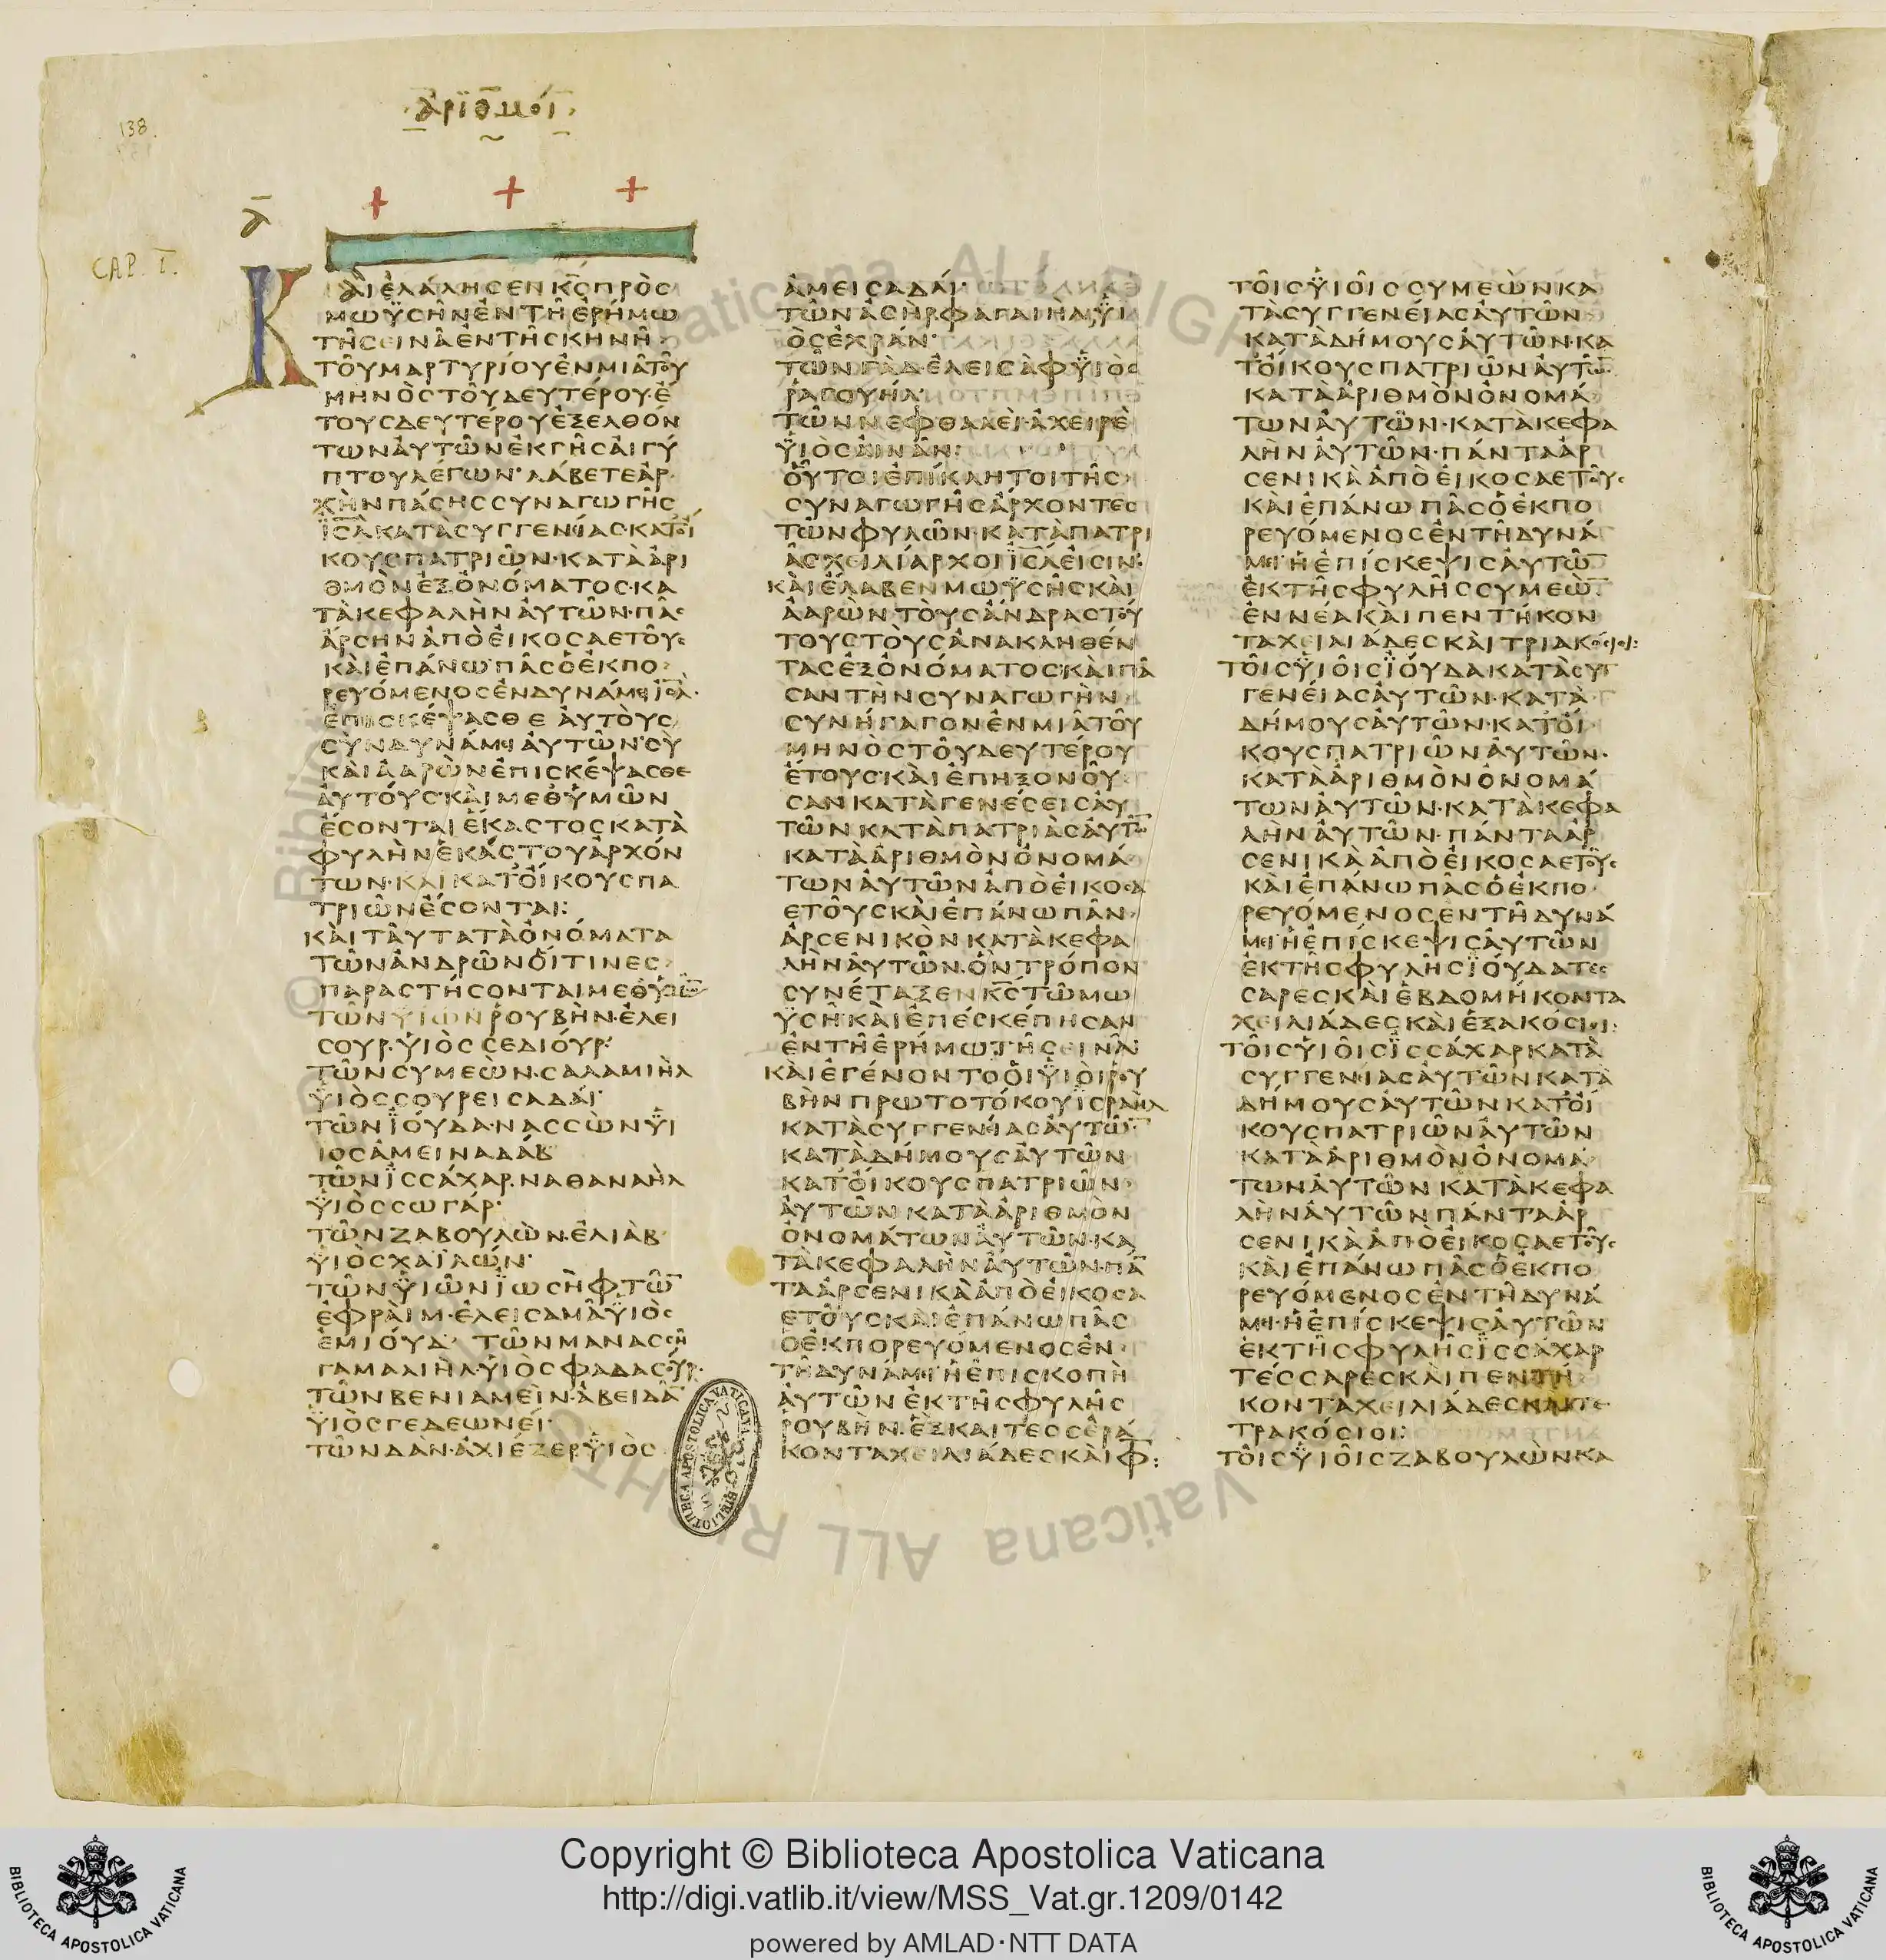 138.
ἀρϊθμοί
ᾱ
CAP. I.
Κ
ΑῚ ἘΛΆΛΗϹΕΝ Κ̅Ϲ̅ ΠΡῸϹ
ΜΩΫϹΗ͂Ν ἘΝ ΤΗ͂ ἘΡΉΜΩ
ΤΗ͂ ϹΕΙΝᾺ ἘΝ ΤΗ͂ ϹΚΗΝΗ͂
ΤΟΥ͂ ΜΑΡΤΥΡΊΟΥ ἘΝ ΜΙᾶ ΤΟΥ͂
ΜΗΝῸϹ ΤΟΥ͂ ΔΕΥΤΈΡΟΥ· Ἔ
ΤΟΥϹ ΔΕΥΤΈΡΟΥ ἘΞΕΛΘΌΝ
ΤΩΝ ἈΥΤΩ͂Ν ἘΚ ΓΗ͂Ϲ ἈΙΓΎ
ΠΤΟΥ ΛΈΓΩΝ· ΛΆΒΕΤΕ ἈΡ
ΧῊΝ ΠΆϹΗϹ ϹΥΝΑΓΩΓΗ͂Ϲ
Ῑ̈Ϲ̅Λ̅ ΚΑΤᾺ ϹΥΓΓΕΝΕΊΑϹ· ΚΑΤ ὈΊ
ΚΟΥϹ ΠΑΤΡΙΩ͂Ν· ΚΑΤᾺ ἈΡΙ
ΘΜῸΝ ἘΞ ὈΝΌΜΑΤΟϹ· ΚΑ
ΤᾺ ΚΕΦΑΛῊΝ ἈΥΤΩ͂Ν· ΠᾶϹ
ἌΡϹΗΝ ἈΠῸ ἘΙΚΟϹΑΕΤΟΥ͂Ϲ
ΚΑῚ ἘΠΆΝΩ ΠᾶϹ Ὁ ἘΚΠΟ
ΡΕΥΌΜΕΝΟϹ ἘΝ ΔΥΝΆΜΕΙ Ῑ̈Ϲ̅Λ̅·
ἘΠΙϹΚΈΨΑϹΘΕ ἈΥΤΟῪϹ
ϹῪΝ ΔΥΝΆΜΕΙ ἈΥΤΩ͂Ν· ϹῪ
ΚΑῚ ἈΑΡῺΝ ἘΠΙϹΚΈΨΑϹΘΕ
ἈΥΤΟΎϹ· ΚΑῚ ΜΕΘ ὙΜΩ͂Ν
ἜϹΟΝΤΑΙ ἝΚΑϹΤΟϹ ΚΑΤᾺ
ΦΥΛῊΝ ἙΚΆϹΤΟΥ ἈΡΧΌΝ
ΤΩΝ· ΚΑΙ ΚΑΤ ὈΊΚΟΥϹ ΠΑ
ΤΡΙΩ͂Ν ἜϹΟΝΤΑΙ:
ΚΑῚ ΤΑΥ͂ΤΑ ΤᾺ ὈΝΌΜΑΤΑ
ΤΩ͂Ν ἈΝΔΡΩ͂Ν ὍΙΤΙΝΕϹ
ΠΑΡΑϹΤΉϹΟΝΤΑΙ ΜΕΘ ὙΜΩ͂Ν
ΤΩ͂Ν ΥΙΩΝ ΡΟΥΒῊΝ· ἘΛΕΙ
ϹΟΥΡ· ὙΙῸϹ ϹΕΔΙΌΥΡ·
ΤΩ͂Ν ϹΥΜΕῺΝ· ϹΑΛΑΜΙῊΛ
ὙΙῸϹ ϹΟΥΡΕΙϹΑΔΆΙ·
ΤΩ͂Ν ἸΟΎΔΑ· ΝΑϹϹῺΝ ΥἹ
ΙΟϹ ἈΜΕΙΝΑΔΆΒ
ΤΩ͂Ν ἸϹϹΆΧΑΡ· ΝΑΘΑΝΑῊΛ
ὙΙῸϹ ϹΩΓΆΡ·
ΤΩ͂Ν ΖΑΒΟΥΛῺΝ· ἘΛΙᾺΒ
ὙΙΟϹ ΧΑΙΛΏΝ·
ΤΩ͂Ν ὙΙΩ͂Ν ἸΩϹῊΦ· ΤΩ̅
ἘΦΡᾺΙΜ· ἘΛΕΙϹΑΜᾺ ὙΙῸϹ
ἘΜΙΟΎΔ· ΤΩ͂Ν ΜΑΝΑϹϹΗ͂
ΓΑΜΑΛΙῊΛ ὙΙῸϹ ΦΑΔΑϹΟΎΡ·
ΤΩ͂Ν ΒΕΝΙΑΜΕῚΝ· ἈΒΕΙΔᾺ
ὙΙῸϹ ΓΕΔΕΩΝΕΊ·
ΤΩ͂Ν ΔΑΝ· ἈΧΙΈΖΕΡ ὙΙῸϹ
ἈΜΕΙϹΑΔΆΙ·
ΤΩ͂Ν ἈϹῊΡ ΦΑΓΑΙῊΛ ὙΙ
ῸϹ ἘΧΡΆΝ·
ΤΩ͂Ν ΓᾺΔ· ἘΛΕΙϹᾺΦ ὙΙῸϹ
ῬΑΓΟΥΉΛ·
ΤΩ͂Ν ΝΕΦΘΑΛΕῚ· ἈΧΕΙΡῈ
ὙΙῸϹ ἈΙΝΆΝ:
ὍΥΤΟΙ ἘΠΊΚΛΗΤΟΙ ΤΗ͂Ϲ
ϹΥΝΑΓΩΓΗ͂Ϲ ἌΡΧΟΝΤΕϹ
ΤΩ͂Ν ΦΥΛΩ͂Ν· ΚΑΤᾺ ΠΑΤΡΙ
ᾺϹ ΧΕΙΛΊΑΡΧΟΙ Ῑ̈Ϲ̅Λ̅ ἘΙϹΙΝ:
ΚΑῚ ἜΛΑΒΕΝ ΜΩΫϹΗ͂Ϲ ΚΑῚ
ἈΑΡῺΝ ΤΟῪϹ ἌΝΔΡΑϹ ΤΟΎ
ΤΟΥϹ ΤΟῪϹ ἈΝΑΚΛΗΘΈΝ
ΤΑϹ ἘΞ ὈΝΌΜΑΤΟϹ· ΚΑῚ Πᾶ
ϹΑΝ ΤῊΝ ϹΥΝΑΓΩΓῊΝ
ϹΥΝΉΓΑΓΟΝ ἘΝ ΜΙᾶ ΤΟΥ͂
ΜΗΝῸϹ ΤΟΥ͂ ΔΕΥΤΈΡΟΥ
ἜΤΟΥϹ· ΚΑῚ ἘΠΗΞΟΝΟΥ͂
ϹΑΝ ΚΑΤᾺ ΓΕΝΈϹΕΙϹ ἈΥ
ΤΩ͂Ν ΚΑΤᾺ ΠΑΤΡΙᾺϹ ἈΥΤΩ̅
ΚΑΤᾺ ἈΡΙΘΜῸΝ ὈΝΟΜΆ
ΤΩΝ ἈΥΤΩ͂Ν ἈΠῸ ἘΙΚΟϹΑ
ΕΤΟΥ͂Ϲ ΚΑῚ ἘΠΆΝΩ ΠᾶΝ
ἈΡϹΕΝΙΚῸΝ ΚΑΤᾺ ΚΕΦΑ
ΛῊΝ ἈΥΤΩ͂Ν· ὋΝ ΤΡΌΠΟΝ
ϹΥΝΈΤΑΞΕΝ Κ̅Ϲ̅ ΤΩ͂ ΜΩ
ΫϹΗ͂ ΚΑῚ ἘΠΕϹΚΈΠΗϹΑΝ
ἘΝ ΤΗ͂ ἘΡΉΜΩ ΤΗ͂ ϹΕΙΝᾺ:
ΚΑῚ ἘΓΈΝΟΝΤΟ ὉΙ ὙΙΟῚ ΡΟΥ
ΒῊΝ ΠΡΩΤΟΤΌΚΟΥ ἸϹΡΑΗΛ
ΚΑΤᾺ ϹΥΓΓΕΝΕΊΑϹ ἈΥΤΩ̅
ΚΑΤᾺ ΔΉΜΟΥϹ ἈΥΤΩ͂Ν
ΚΑΤ ὈΊΚΟΥϹ ΠΑΤΡΙΩ͂Ν
ἈΥΤΩ͂Ν ΚΑΤᾺ ἈΡΙΘΜῸΝ
ὈΝΟΜΆΤΩΝ ἈΥΤΩ͂Ν· ΚΑ
ΤᾺ ΚΕΦΑΛῊΝ ἈΥΤΩ͂Ν· ΠΑ̅
ΤΑ ἈΡϹΕΝΙΚᾺ ἈΠῸ ἘΙΚΟϹΑ
ΕΤΟΥ͂Ϲ ΚΑῚ ἘΠΆΝΩ ΠᾶϹ
Ὁ ἘΚΠΟΡΕΥΌΜΕΝΟϹ ἘΝ
ΤΗ͂ ΔΥΝΆΜΕΙ· Ἡ ἘΠΙϹΚΟΠῊ
ἈΥΤΩ͂Ν ἘΚ ΤΗ͂Ϲ ΦΥΛΗ͂Ϲ
ΡΟΥΒῊΝ· ἛΞ ΚΑΙ ΤΕϹϹΕΡΆ
ΚΟΝΤΑ ΧΕΙΛΙΆΔΕϹ ΚΑῚ Φ̅:
ΤΟΙ͂Ϲ ὙΙΟΙ͂Ϲ ϹΥΜΕῺΝ ΚΑ
ΤᾺ ϹΥΓΓΕΝΕΊΑϹ ἈΥΤΩ͂Ν
ΚΑΤᾺ ΔΉΜΟΥϹ ἈΥΤΩ͂Ν· ΚΑ
Τ ὈΊΚΟΥϹ ΠΑΤΡΙΩ͂Ν ἈΥΤΩ̅
ΚΑΤᾺ ἈΡΙΘΜῸΝ ὈΝΟΜΆ
ΤΩΝ ἈΥΤΩ͂Ν· ΚΑΤᾺ ΚΕΦΑ
ΛῊΝ ἈΥΤΩ͂Ν· ΠΆΝΤΑ ἈΡ
ϹΕΝΙΚᾺ ἈΠῸ ἘΙΚΟϹΑΕΤΟΥ͂Ϲ
ΚΑῚ ἘΠΆΝΩ ΠᾶϹ Ὁ ἘΚΠΟ
ΡΕΥΌΜΕΝΟϹ ἘΝ ΤΗ͂ ΔΥΝΆ
ΜΕΙ· Ἡ ἘΠΊϹΚΕΨΙϹ ἈΥΤΩ̅
ἘΚ ΤΗ͂Ϲ ΦΥΛΗ͂Ϲ ϹΥΜΕΩ̅·
ἘΝΝΈΑ ΚΑῚ ΠΕΝΤΉΚΟΝ
ΤΑ ΧΕΙΛΙΆΔΕϹ ΚΑῚ ΤΡΙΑΚΌϹΙΟΙ:
ΤΟΙ͂Ϲ ὙΙΟΙ͂Ϲ ἸΟΎΔΑ ΚΑΤᾺ ϹΥΓ
ΓΕΝΕΊΑϹ ἈΥΤΩ͂Ν· ΚΑΤᾺ
ΔΉΜΟΥϹ ἈΥΤΩ͂Ν· ΚΑΤ ὈΊ
ΚΟΥϹ ΠΑΤΡΙΩ͂Ν ἈΥΤΩ͂Ν·
ΚΑΤᾺ ἈΡΙΘΜῸΝ ὈΝΟΜΆ
ΤΩΝ ἈΥΤΩ͂Ν· ΚΑΤᾺ ΚΕΦΑ
ΛῊΝ ἈΥΤΩ͂Ν· ΠΆΝΤΑ ἈΡ
ϹΕΝΙΚᾺ ἈΠῸ ἘΙΚΟϹΑΕΤΟΥ͂Ϲ
ΚΑῚ ἘΠΆΝΩ ΠᾶϹ Ὁ ἘΚΠΟ
ΡΕΥΌΜΕΝΟϹ ἘΝ ΤΗ͂ ΔΥΝΆ
ΜΕΙ· Ἡ ἘΠΊϹΚΕΨΙϹ ἈΥΤΩ͂Ν
ἘΚ ΤΗ͂Ϲ ΦΥΛΗ͂Ϲ ἸΟΎΔΑ ΤΕϹ
ϹΑΡΕϹ ΚΑῚ ἙΒΔΟΜΉΚΟΝΤΑ
ΧΕΙΛΙΆΔΕϹ ΚΑῚ ἙΞΑΚΌϹΙΟΙ:
ΤΟΙ͂Ϲ ὙΙΟΙ͂Ϲ ἸϹϹΆΧΑΡ ΚΑΤᾺ
ϹΥΓΓΕΝΕΊΑϹ ἈΥΤΩ͂Ν ΚΑΤᾺ
ΔΉΜΟΥϹ ἈΥΤΩ͂Ν ΚΑΤ ὈΊ
ΚΟΥϹ ΠΑΤΡΙΩ͂Ν ἈΥΤΩ͂Ν
ΚΑΤᾺ ἈΡΙΘΜῸΝ ὈΝΟΜΆ
ΤΩΝ ἈΥΤΩ͂Ν ΚΑΤᾺ ΚΕΦΑ
ΛῊΝ ἈΥΤΩ͂Ν ΠΆΝΤΑ ἈΡ
ϹΕΝΙΚᾺ ἈΠῸ ἘΙΚΟϹΑΕΤΟΥ͂Ϲ
ΚΑῚ ἘΠΆΝΩ ΠᾶϹ Ὁ ἘΚΠΟ
ΡΕΥΌΜΕΝΟϹ ἘΝ ΤΗ͂ ΔΥΝΆ
ΜΕΙ· Ἡ ἘΠΊϹΚΕΨΙϹ ἈΥΤΩ͂Ν
ἘΚ ΤΗ͂Ϲ ΦΥΛΗ͂Ϲ ἸϹϹΆΧΑΡ
ΤΈϹϹΑΡΕϹ ΚΑῚ ΠΕΝΤΉ
ΚΟΝΤΑ ΧΕΙΛΙΆΔΕϹ ΚΑῚ ΤΕ
ΤΡΑΚΌϹΙΟΙ:
ΤΟΙ͂Ϲ ὙΙΟΙ͂Ϲ ΖΑΒΟΥΛῺΝ ΚΑ
BIBLIOTECA APOSTOLICA VATICANA
Copyright © Biblioteca Apostolica Vaticana
http://digi.vatlib.it/view/MSS_Vat.gr.1209/0142
powered by AMLAD·NTT DATA
BIBLIOTECA APOSTOLICA VATICANA
BIBLIOTECA APOSTOLICA VATICANA